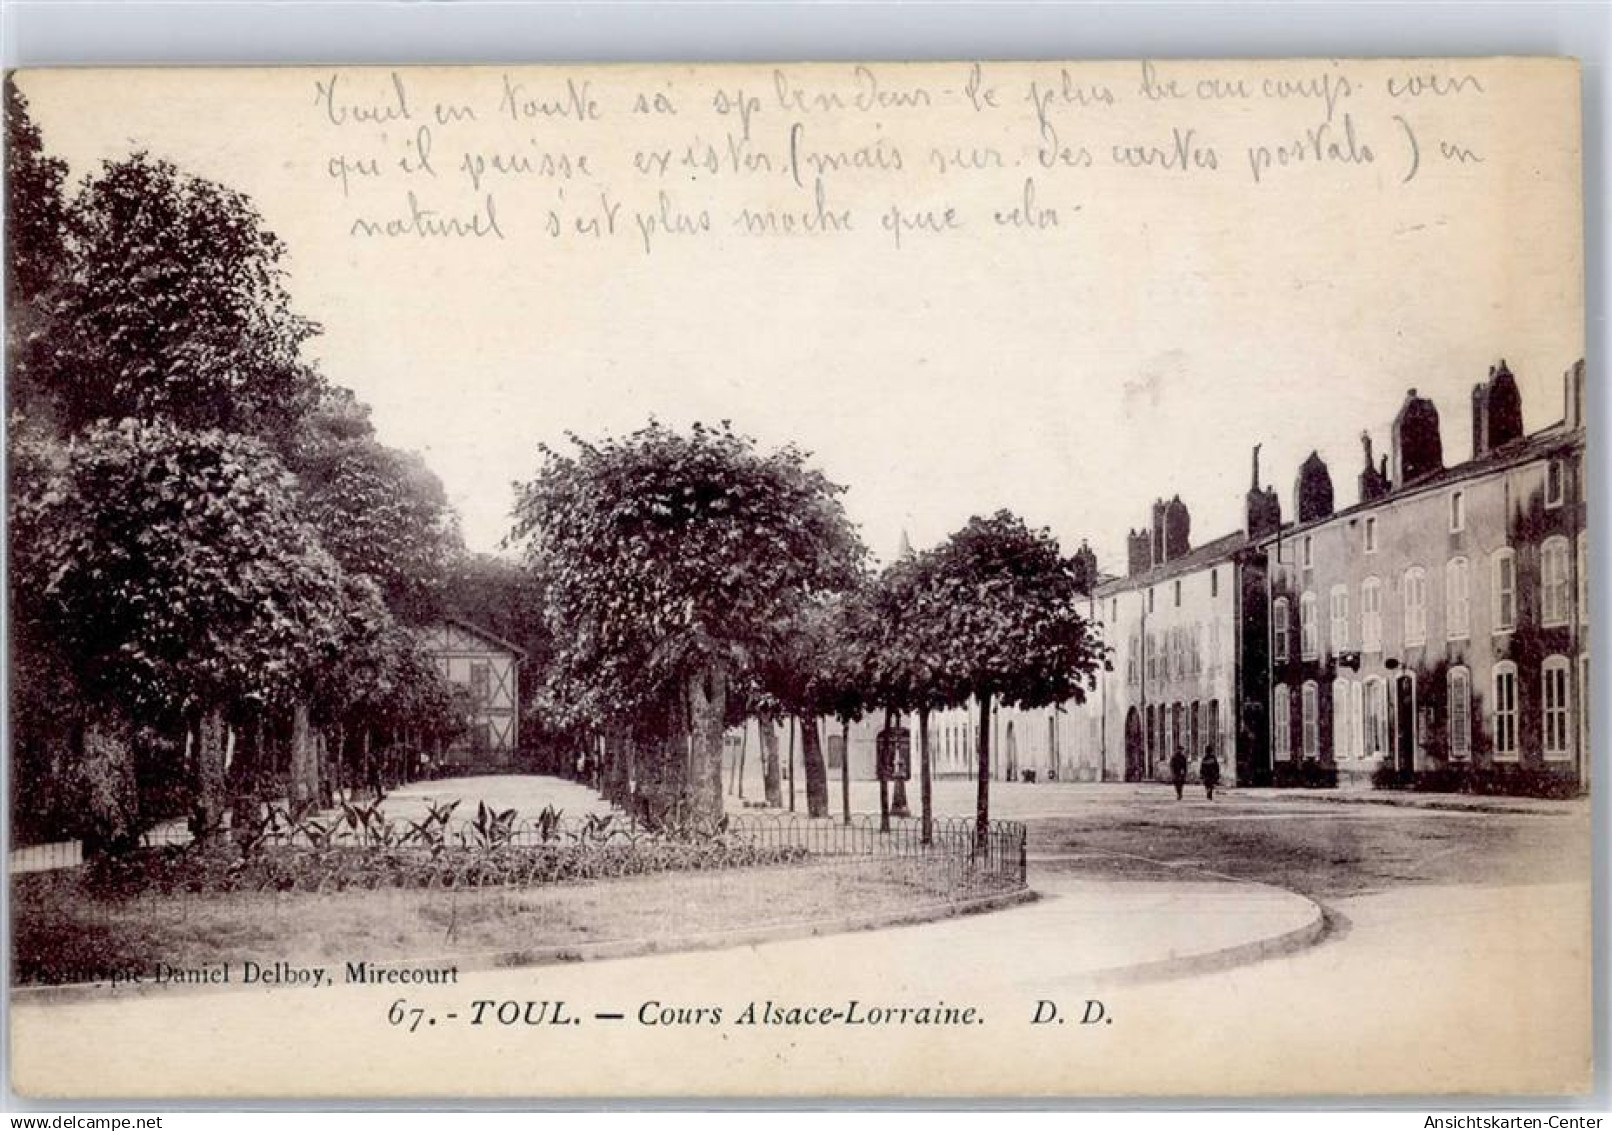 Toul en toute sa splendeur - le plus beaucoups coin
qu'il puisse exister. (mais sur des cartes postals) en
naturel s'est plus moche que cela.
Phototypie Daniel Delboy, Mirecourt
67. - TOUL. — Cours Alsace-Lorraine. D. D.
www.delcampe.net
Ansichtskarten-Center